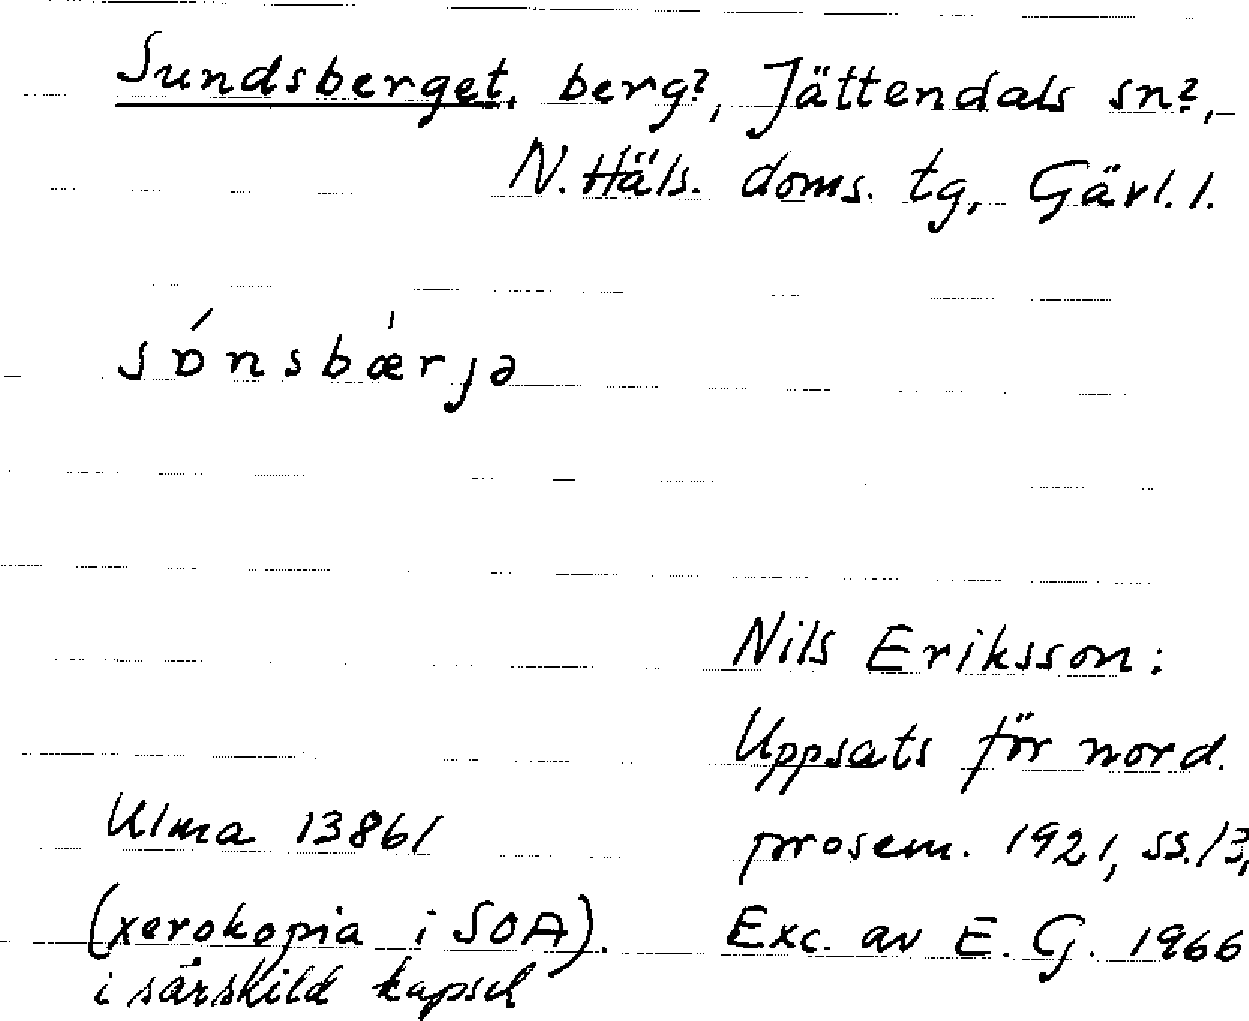 Sundsberget, berg?, Jättendals sn?,
N. Häls. doms. tg, Gävl. l.
sɒ́nsbæ̍rjə
Nils Eriksson:
Uppsats för nord.
prosem. 1921, ss. 13,
Exc. av E. G. 1966
Ulma 13861
(xerokopia i SOA).
i särskild kapsel